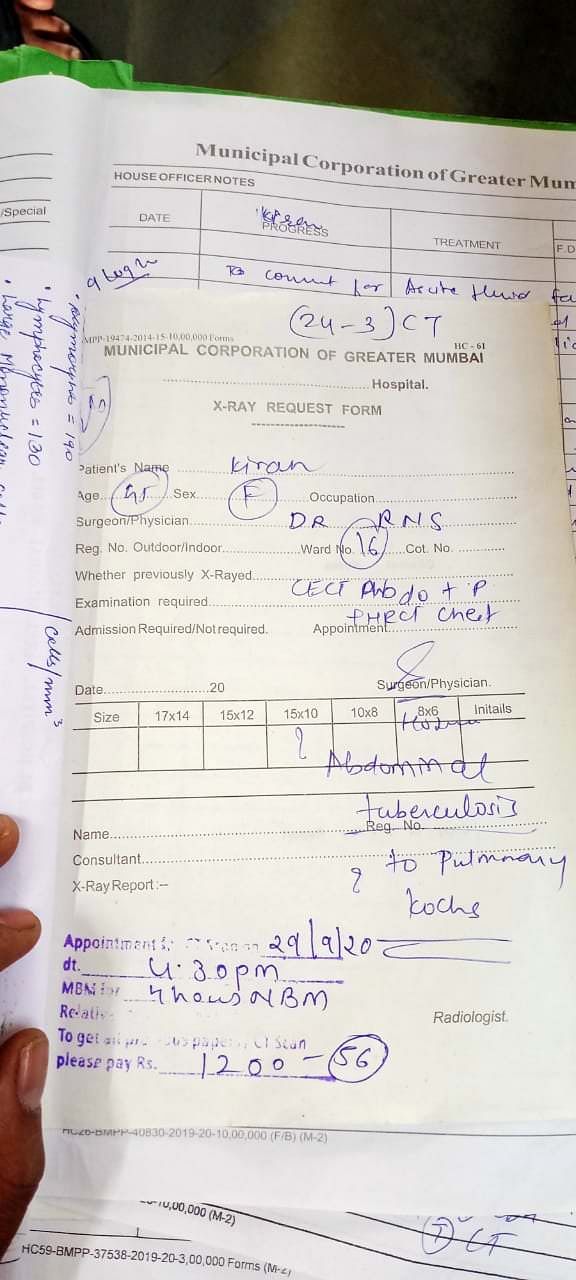 Municipal Corporation of Greater Mum
HOUSE OFFICER NOTES
/Special
DATE
PROGRESS
TREATMENT
F.D
count for Acute fluid
Lymphocytes = 130
= 190
Cells/mm3
(24-3) CT
MPP-19474-2014-15-10,00,000 Forms
HC - 61
MUNICIPAL CORPORATION OF GREATER MUMBAI
Hospital.
X-RAY REQUEST FORM
Patient's Name Kiran
Age 45 Sex F Occupation
Surgeon/Physician DR RNS
Reg. No. Outdoor/Indoor Ward No. 16 Cot. No.
Whether previously X-Rayed
Examination required CECT Abdo + P
HRCT Chest
Admission Required/Not required. Appointment
Date 20
Surgeon/Physician.
Size 17x14 15x12 15x10 10x8 8x6 Initails
? Abdominal
tuberculosis
Name Reg. No.
Consultant
? to Pulmnary
X-Ray Report :–
Kochs
Appointment 29/9/20
dt. 4.30pm
MBM for 4 hours NBM
Radiologist.
To get all previous papers, CT Scan
please pay Rs. 1200 - 56
HC26-BMPP-40830-2019-20-10,00,000 (F/B) (M-2)
10,00,000 (M-2)
CT
HC59-BMPP-37538-2019-20-3,00,000 Forms (M-2)